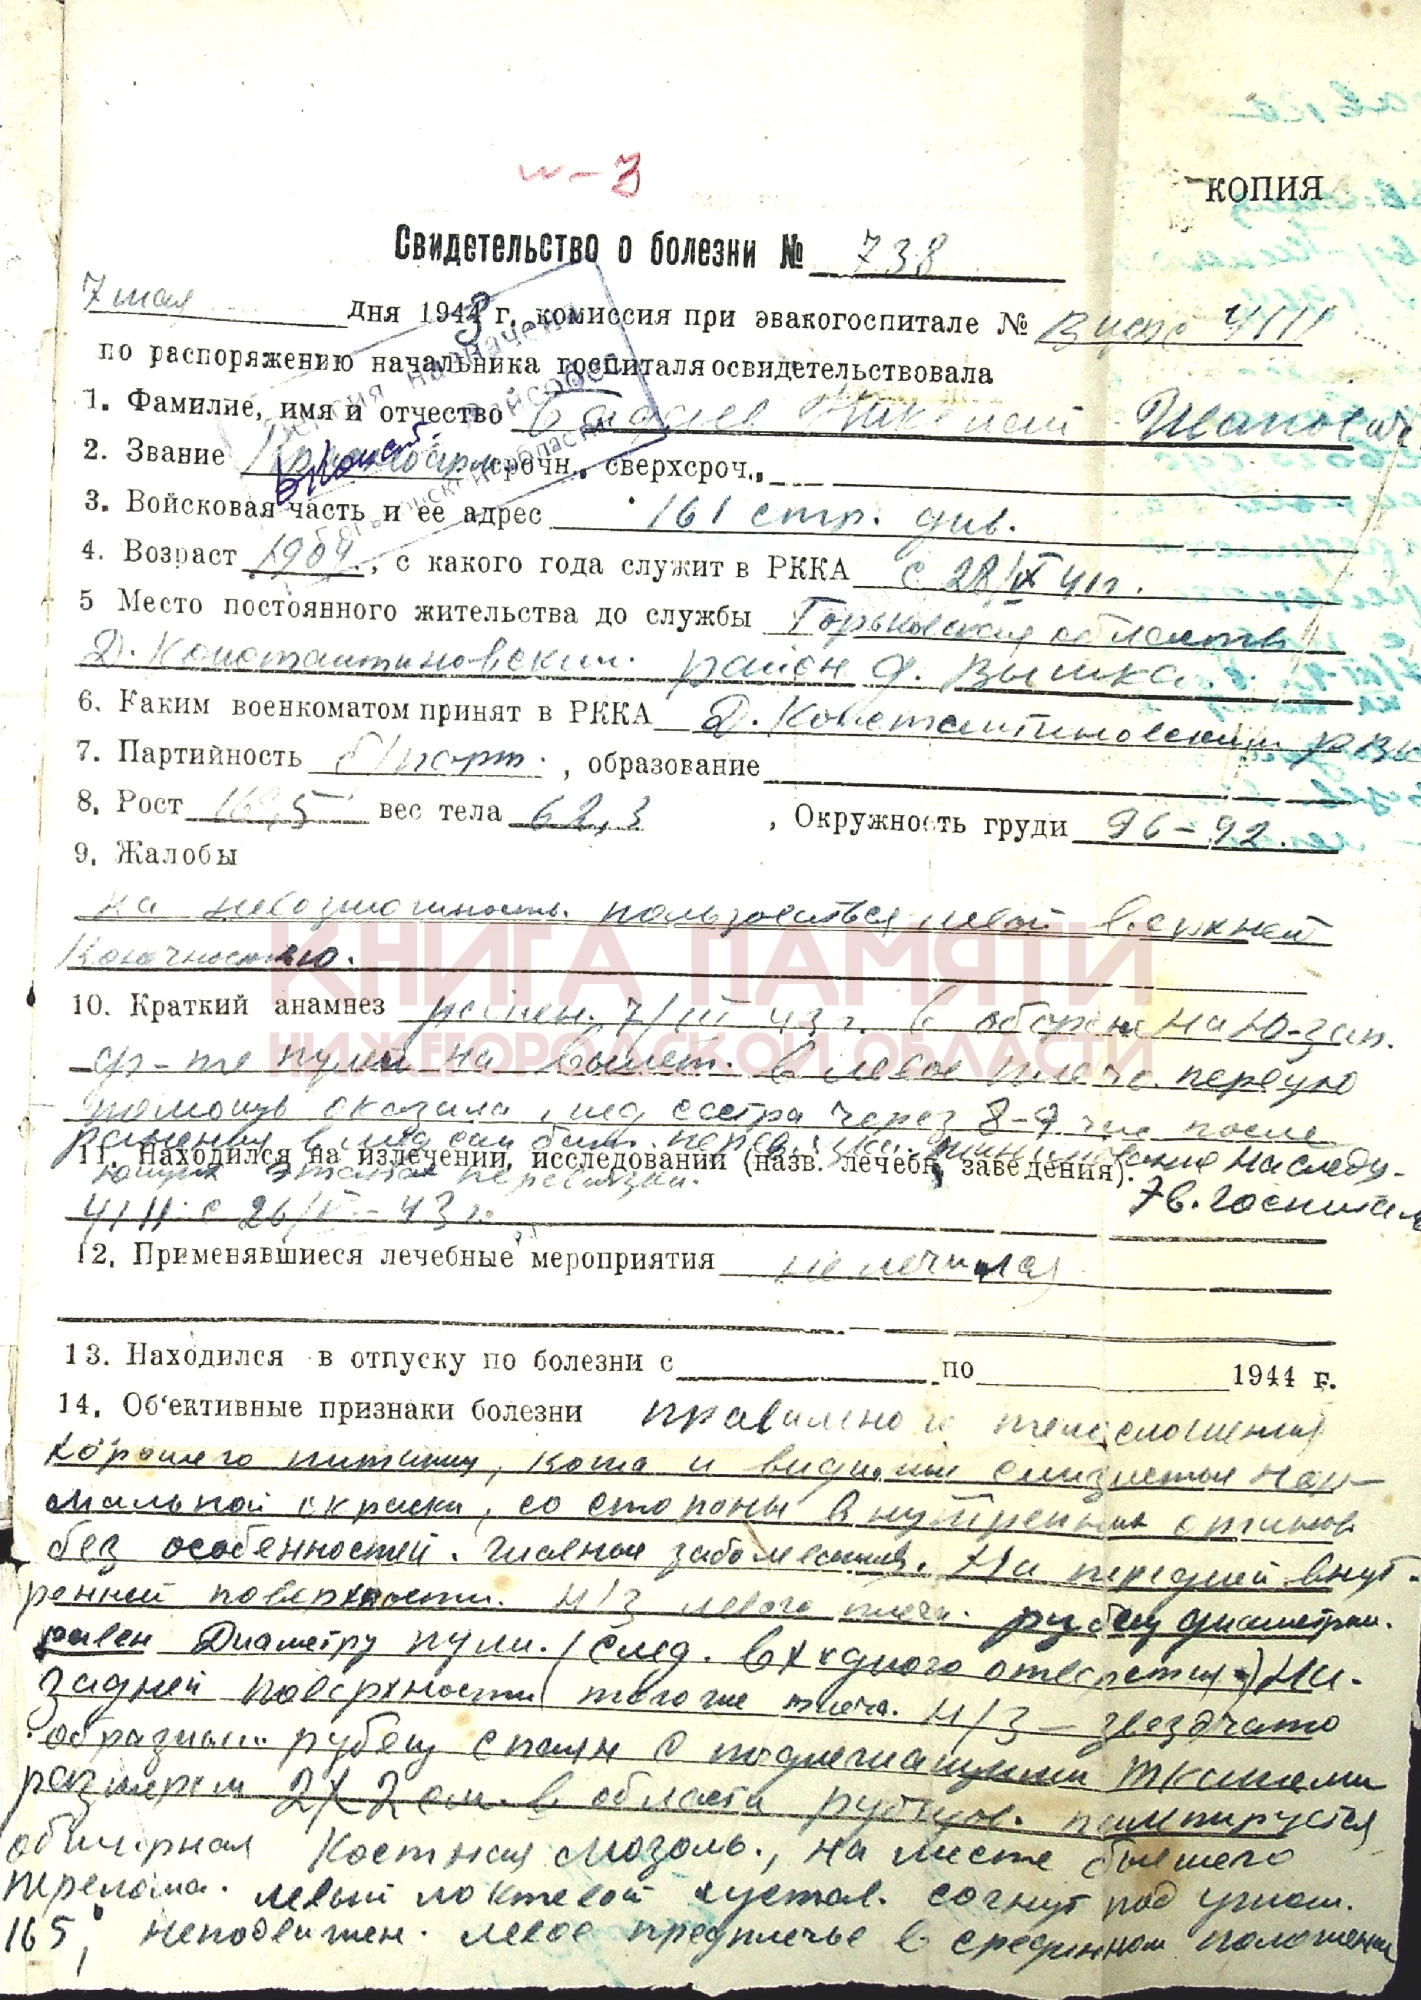 КОПИЯ
Свидетельство о болезни № 738
7 мая дня 1943 г. комиссия при эвакогоспитале № 4111
по распоряжению начальника госпиталя освидетельствовала
1. Фамилие, имя и отчество Николай Иванович
2. Звание Красноарм. срочн., сверхсроч.,
3. Войсковая часть и ее адрес 161 стр. див.
4. Возраст 1904, с какого года служит в РККА с 28/IX 41г.
5 Место постоянного жительства до службы Горьковская область
Д. Константиновский район д.
6. Каким военкоматом принят в РККА Д. Константиновским РВК
7. Партийность б/парт. , образование
8. Рост вес тела 62,3 , Окружность груди 96-92.
9. Жалобы
на невозможность пользоваться левой верхней
конечностью.
10. Краткий анамнез ранен 7/III 43 г. в обороне на Ю-зап.
фр-те пулей на вылет. в левое плечо. первую
помощь оказала мед сестра через 8-9 час после
ранения в мед сан бат. на следу-
11. Находился на излечении, исследовании (назв. лечебн. заведения).
ющих этапах перевязки.
Эв. госпиталь
4111 с 26/ - 43 г.
12. Применявшиеся лечебные мероприятия не лечился
13. Находился в отпуску по болезни с по 1944 г.
14. Об'ективные признаки болезни правильного телосложения
хорошего питания, кожа и видимые слизистые нор-
мальной окраски, со стороны внутренних органов
без особенностей. На передней внут-
ренней поверхности н/3 левого плеча рубец диаметром
равен диаметру пули. (след. входного отверстия) На
задней поверхности того же плеча н/3 - звездчато
образный рубец спаян с подлежащими тканями
размером 2х2 см. в области рубцов пальпируется
обширная костная мозоль, на месте бывшего
перелома. левый локтевой сустав согнут под углом
165°, неподвижен. левое предплечье в срединном положении
КНИГА ПАМЯТИ
НИЖЕГОРОДСКОЙ ОБЛАСТИ